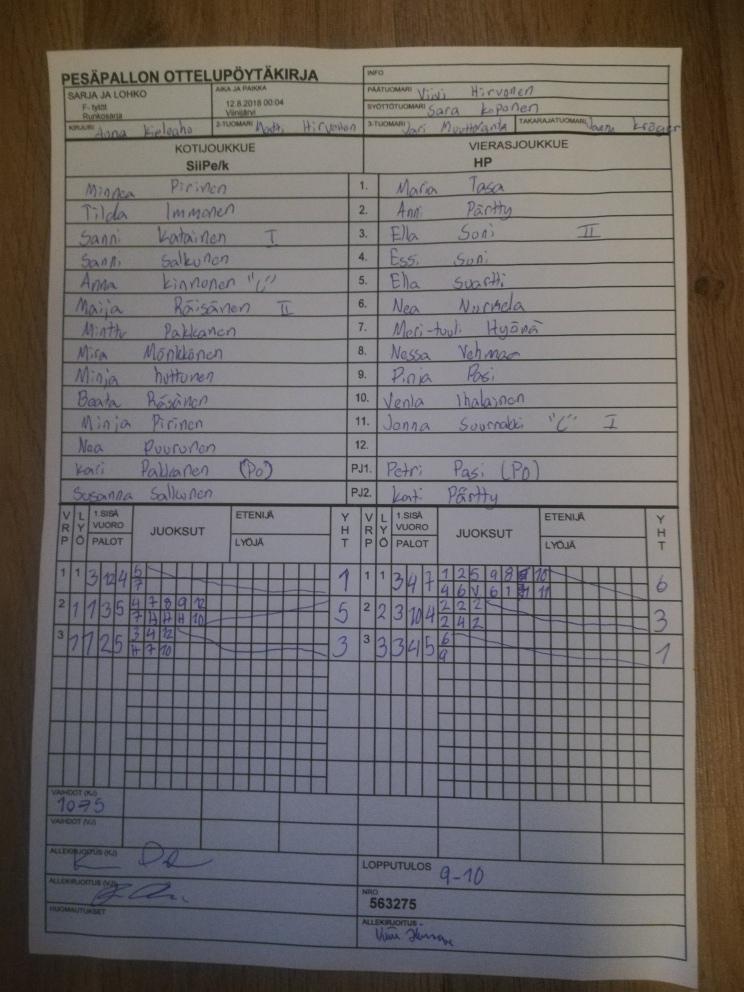 PESÄPALLON OTTELUPÖYTÄKIRJA
INFO
SARJA JA LOHKO
F- tytöt
Runkosarja
AIKA JA PAIKKA
12.8.2018 00:04
Viinijärvi
PÄÄTUOMARI Viivi Hirvonen
SYÖTTÖTUOMARI Sara Koponen
KIRJURI Anna Kieleaho 2-TUOMARI Matti Hirvonen 3-TUOMARI Jari Muuttoranta TAKARAJATUOMARI Janne Kröger
KOTIJOUKKUE VIERASJOUKKUE
SiiPe/k HP
Minnea Pirinen 1. Maria Tasa
Tilda Immonen 2. Anni Pärtty
Sanni Katainen I 3. Ella Soni II
Sanni Salkunen 4. Essi Soni
Anna Kinnonen "C" 5. Ella Suortti
Maija Räisänen II 6. Nea Nurmela
Minttu Pakkanen 7. Meri-tuuli Hyönä
Mira Mönkkönen 8. Nessa Vehmaa
Minja huttunen 9. Pinja Pasi
Beata Räsänen 10. Venla Ihalainen
Minja Pirinen 11. Jonna Suurnäkki "C" I
Nea Puurunen 12.
Kari Pakkanen (Po) PJ1. Petri Pasi (PO)
Susanna Salkunen PJ2. Kati Pärtty
VRP LYÖ 1.SISÄ VUORO PALOT JUOKSUT ETENIJÄ LYÖJÄ YHT VRP LYÖ 1.SISÄ VUORO PALOT JUOKSUT ETENIJÄ LYÖJÄ YHT
1 1 3 12 4 5 1 1 1 3 4 7 1 2 5 9 8 10 6
7 4 6 V 6 1 11
2 1 1 3 5 4 7 8 9 12 5 2 2 3 10 4 2 2 2 3
7 H H H 10 2 4 2
3 1 1 2 5 3 4 12 3 3 3 3 4 5 6 1
H 7 10 9
VAIHDOT (KJ)
10-5
VAIHDOT (VJ)
ALLEKIRJOITUS (KJ)
LOPPUTULOS 9-10
ALLEKIRJOITUS (VJ)
NRO
563275
HUOMAUTUKSET
ALLEKIRJOITUS